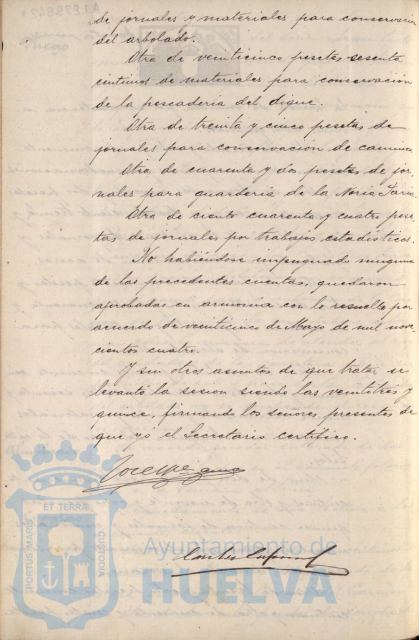 de jornales y materiales para conservación
del arbolado.
Otra de veinticinco pesetas sesenta
céntimos de materiales para conservación
de la pescadería del dique.
Otra de treinta y cinco pesetas de
jornales para conservación de caminos
Otra de cuarenta y dos pesetas de jor-
nales para guardería de la Noria
Otra de ciento cuarenta y cuatro pese-
tas de jornales por trabajos estadísticos.
No habiéndose impugnado ninguna
de las precedentes cuentas, quedaron
aprobadas en armonía con lo resuelto por
acuerdo de veinticinco de Mayo de mil nove-
cientos cuatro.
Y sin otros asuntos de que tratar se
levantó la sesion siendo las veintitres y
quince, firmando los señores presentes de
que yó el Secretario certifico.
PORTUS MARIS
ET TERRÆ
CUSTODIA
Ayuntamiento de
HUELVA